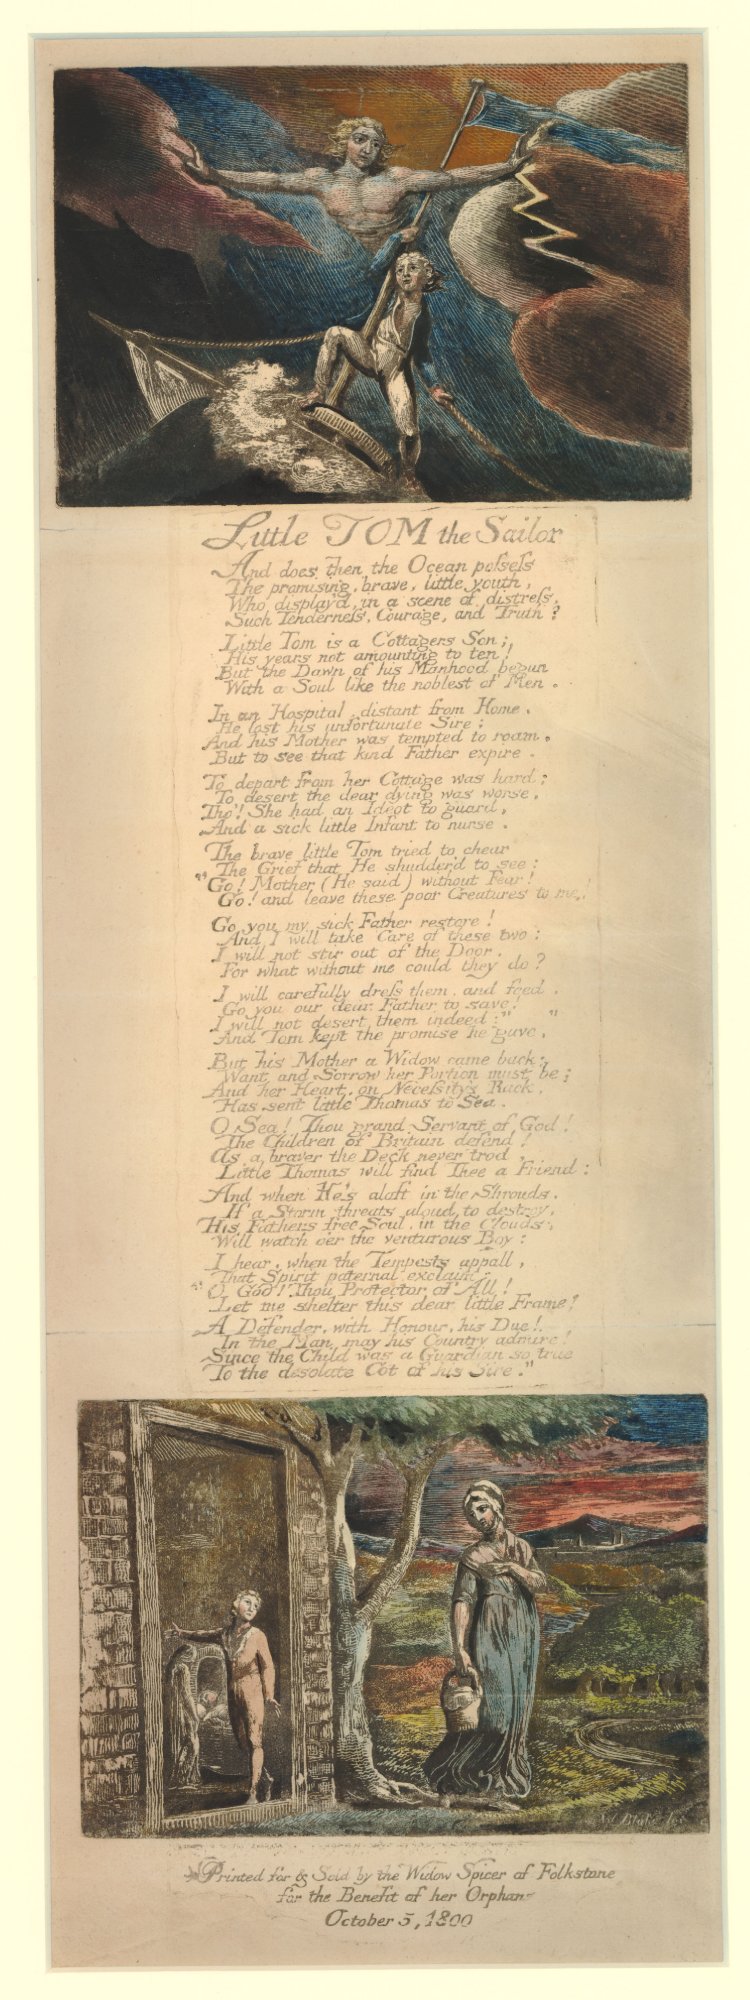 Little TOM the Sailor
And does then the Ocean possess
The promising, brave, little youth,
Who display'd, in a scene of distress,
Such Tenderness, Courage, and Truth?
Little Tom is a Cottagers Son;
His years not amounting to ten!
But the Dawn of his Manhood begun
With a Soul like the noblest of Men.
In an Hospital, distant from Home,
He lost his unfortunate Sire;
And his Mother was tempted to roam,
But to see that kind Father expire.
To depart from her Cottage was hard;
To desert the dear dying was worse,
Tho'! She had an Ideot to guard,
And a sick little Infant to nurse.
The brave little Tom tried to chear
The Grief that He shudder'd to see:
"Go! Mother (He said) without Fear!
Go! and leave these poor Creatures to me,
Go you my sick Father restore!
And I will take Care of these two:
I will not stir out of the Door,
For what without me could they do?
I will carefully dress them, and feed,
Go you our dear Father to save!
I will not desert them indeed:"
And Tom kept the promise he gave.
But his Mother a Widow came back;
Want and Sorrow her Portion must be;
And her Heart, on Necessity's Rack,
Has sent little Thomas to Sea.
O Sea! Thou grand Servant of God!
The Children of Britain defend!
As a braver the Deck never trod,
Little Thomas will find Thee a Friend:
And when He's aloft in the Shrouds,
If a Storm threats aloud to destroy,
His Fathers free Soul, in the Clouds,
Will watch o'er the venturous Boy:
I hear, when the Tempests appall,
That Spirit paternal exclaim,
"O, God! Thou Protector of All!
Let me shelter this dear little Frame!
A Defender, with Honour, his Due!
In the Man, may his Country admire!
Since the Child was a Guardian so true
To the desolate Cot of his Sire."
W Blake
Printed for & Sold by the Widow Spicer of Folkstone
for the Benefit of her Orphans
October 5, 1800